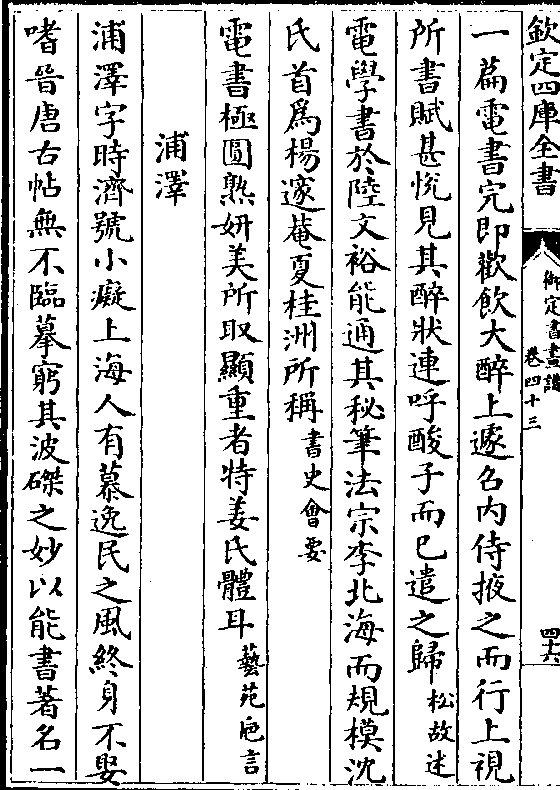 欽定四庫全書
御定書畫譜
卷四十三
四六
一篇電書完即歡飲大醉上遽召内侍掖之而行上視
所書賦甚悅見其醉狀連呼酸子而已遣之歸松故述
電學書於陸文裕能通其秘筆法宗李北海而規模沈
氏首爲楊邃菴夏桂洲所稱書史會要
電書極圓熟妍美所取顯重者特姜氏體耳藝苑卮言
浦澤
浦澤字時濟號小癡上海人有慕逸民之風終身不娶
嗜晉唐古帖無不臨摹窮其波磔之妙以能書著名一